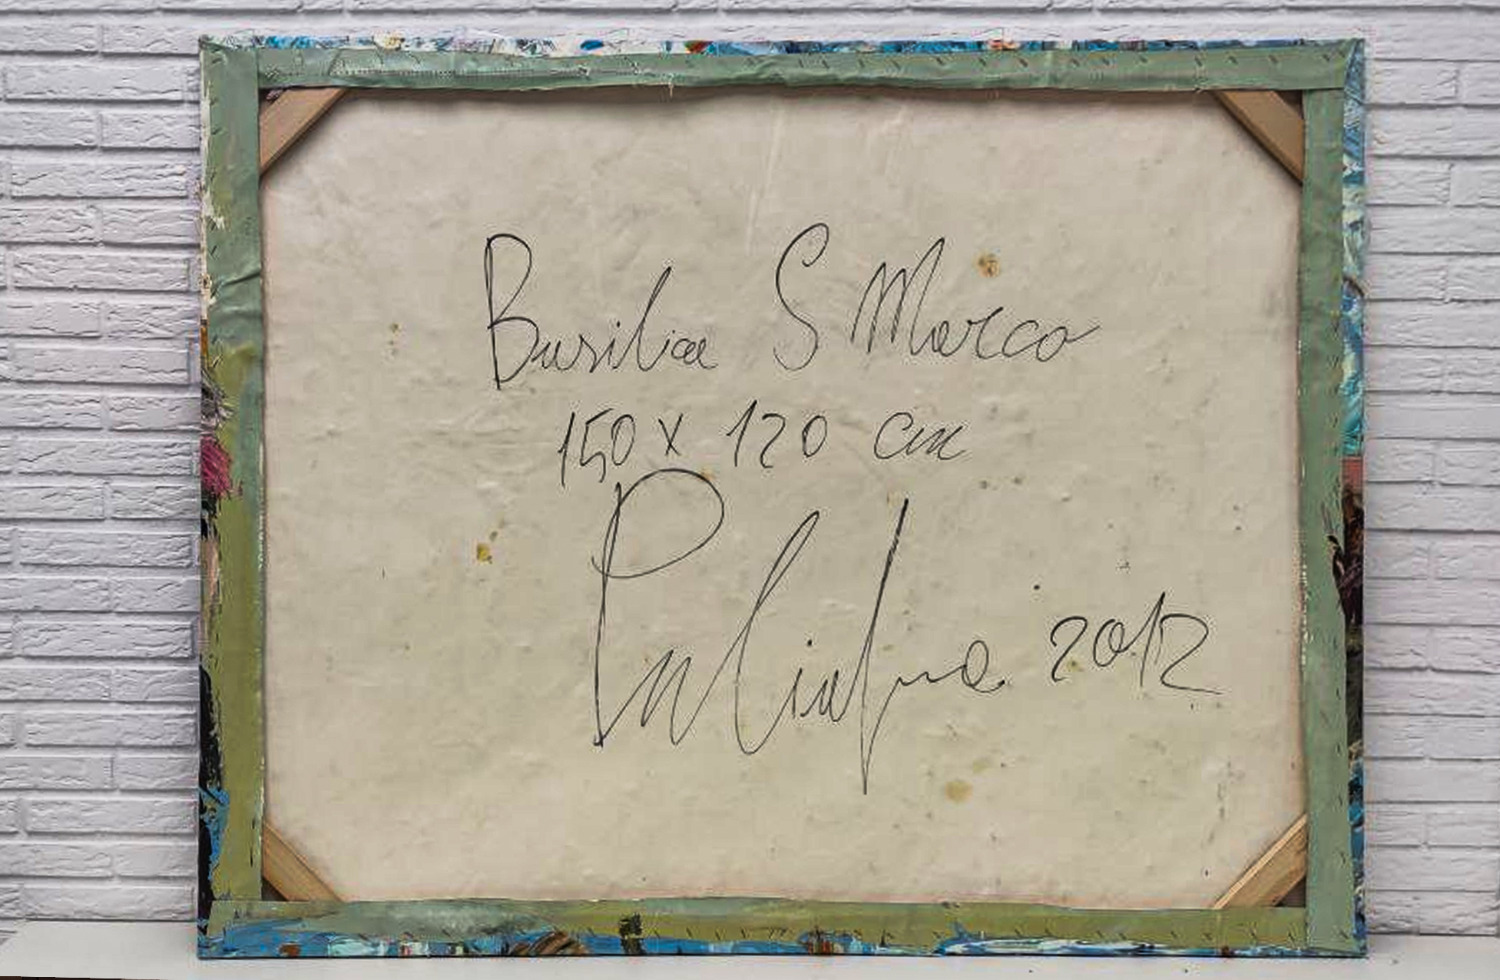 Busilica S Marco
150 x 120 cm
2012